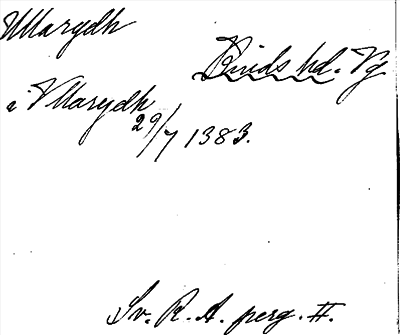 Ullarydh
Kinds hd. Vg
i Vllarydh
29/7 1383.
Sv. R. A. perg. II.